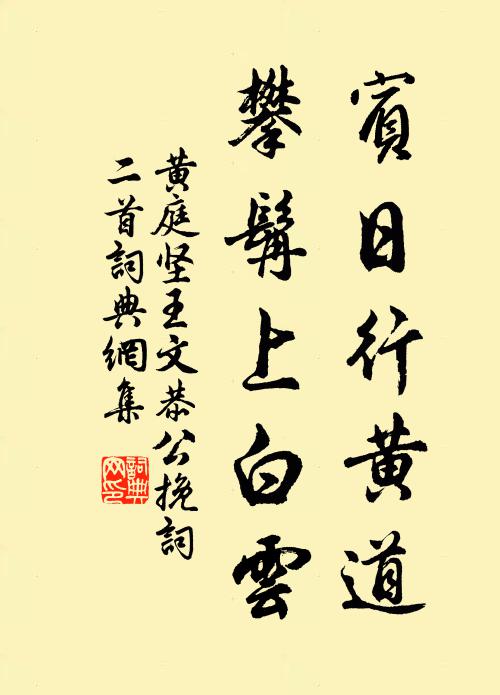 賓日行黄道
攀髯上白雲
黄庭坚王文恭公挽詞
二首詞典網集
詞典
网印